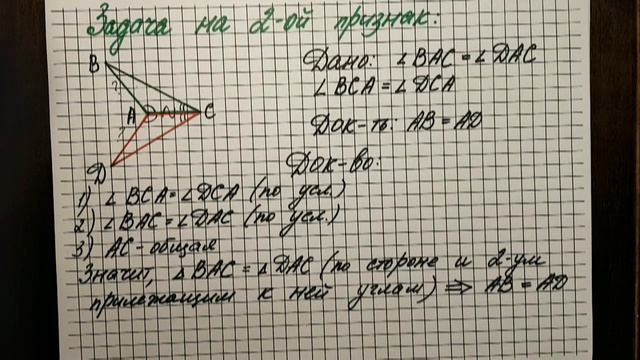 Задача на 2-ой признак:
Дано: ∠BAC = ∠DAC
∠BCA = ∠DCA
Док-ть: AB = AD
Док-во:
B
A
C
D
? ?
1) ∠BCA = ∠DCA (по усл.)
2) ∠BAC = ∠DAC (по усл.)
3) AC - общая
Значит, △BAC = △DAC (по стороне и 2-ум
прилежащим к ней углам) ⇒ AB = AD